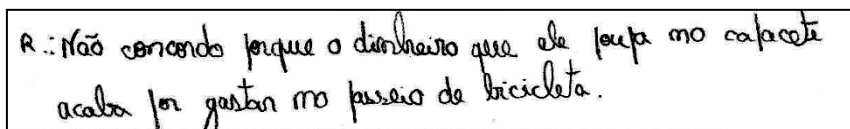 R.: Não concordo porque o dinheiro que ele poupa no capacete
acaba por gastar no passeio de bicicleta.